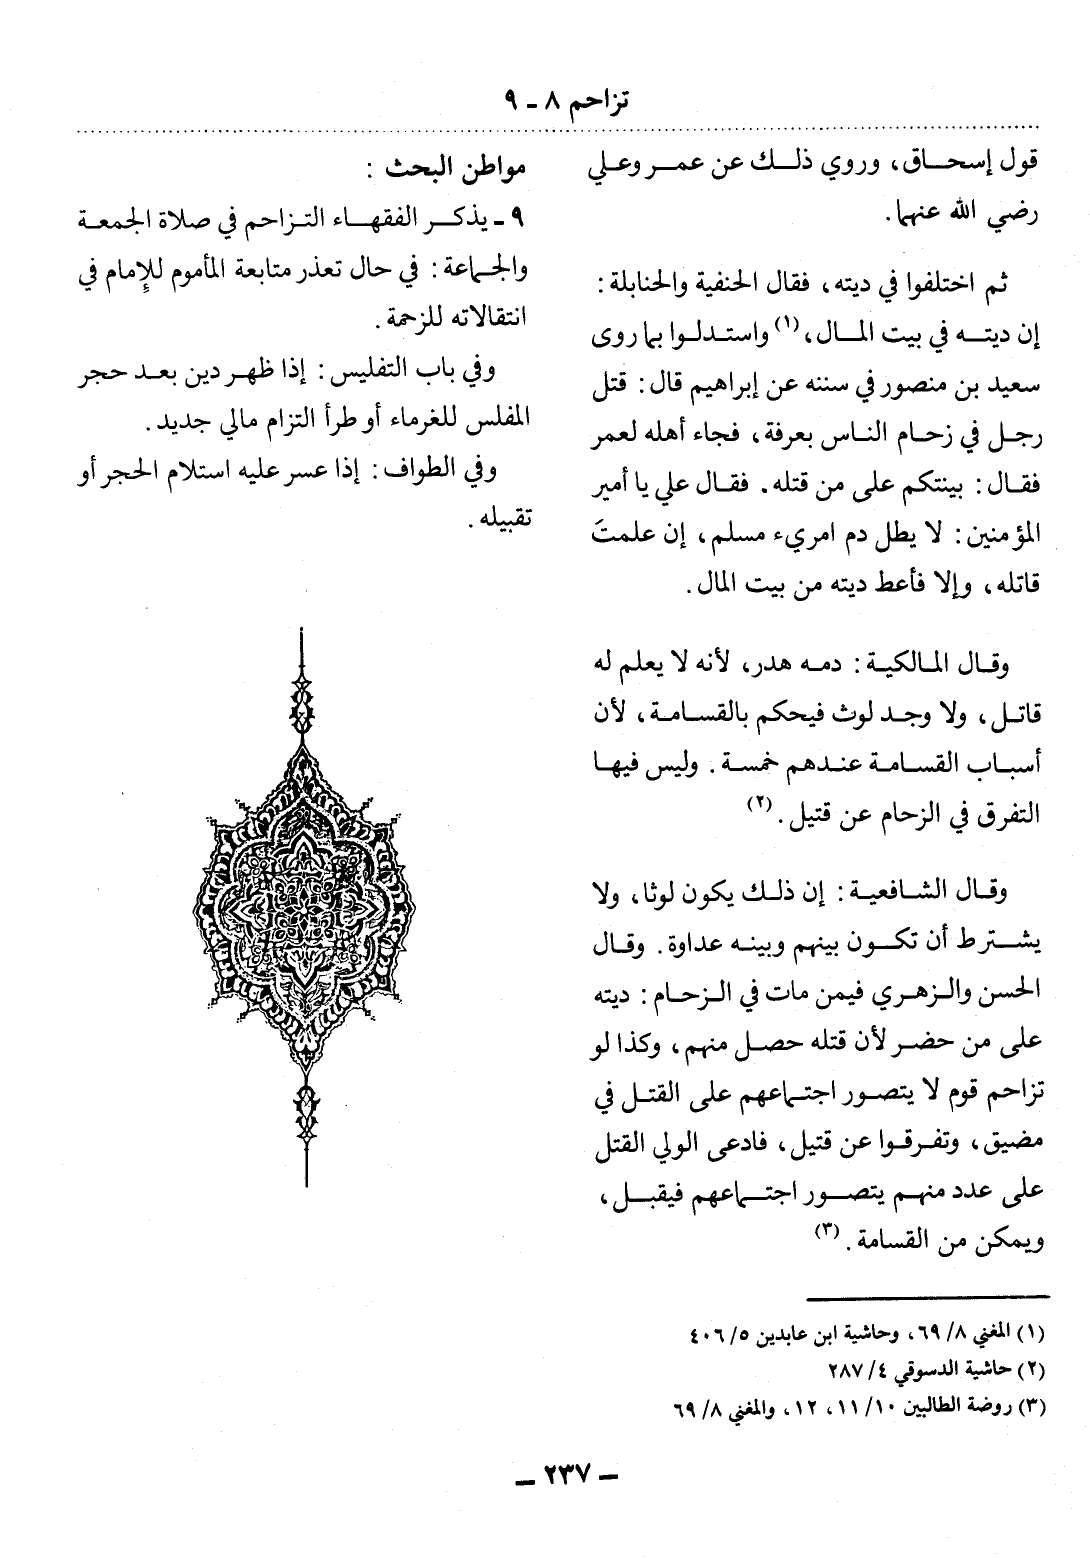 تزاحم ٨ - ٩
قول إسحاق، وروي ذلك عن عمر وعلي
رضي الله عنهما.
ثم اختلفوا في ديته، فقال الحنفية والحنابلة:
إن ديته في بيت المال،(١) واستدلوا بما روى
سعيد بن منصور في سننه عن إبراهيم قال: قتل
رجل في زحام الناس بعرفة، فجاء أهله لعمر
فقال: بينتكم على من قتله. فقال علي يا أمير
المؤمنين: لا يطل دم امريء مسلم، إن علمتَ
قاتله، وإلا فأعط ديته من بيت المال.
وقال المالكية: دمه هدر، لأنه لا يعلم له
قاتل، ولا وجد لوث فيحكم بالقسامة، لأن
أسباب القسامة عندهم خمسة. وليس فيها
التفرق في الزحام عن قتيل.(٢)
وقال الشافعية: إن ذلك يكون لوثا، ولا
يشترط أن تكون بينهم وبينه عداوة. وقال
الحسن والزهري فيمن مات في الزحام: ديته
على من حضر لأن قتله حصل منهم، وكذا لو
تزاحم قوم لا يتصور اجتماعهم على القتل في
مضيق، وتفرقوا عن قتيل، فادعى الولي القتل
على عدد منهم يتصور اجتماعهم فيقبل،
ويمكن من القسامة.(٣)
مواطن البحث:
٩ - يذكر الفقهاء التزاحم في صلاة الجمعة
والجماعة: في حال تعذر متابعة المأموم للإمام في
انتقالاته للزحمة.
وفي باب التفليس: إذا ظهر دين بعد حجر
المفلس للغرماء أو طرأ التزام مالي جديد.
وفي الطواف: إذا عسر عليه استلام الحجر أو
تقبيله.
(١) المغني ٨/ ٦٩، وحاشية ابن عابدين ٥/ ٤٠٦
(٢) حاشية الدسوقي ٤/ ٢٨٧
(٣) روضة الطالبين ١٠/ ١١، ١٢، والمغني ٨/ ٦٩
- ٢٣٧ -